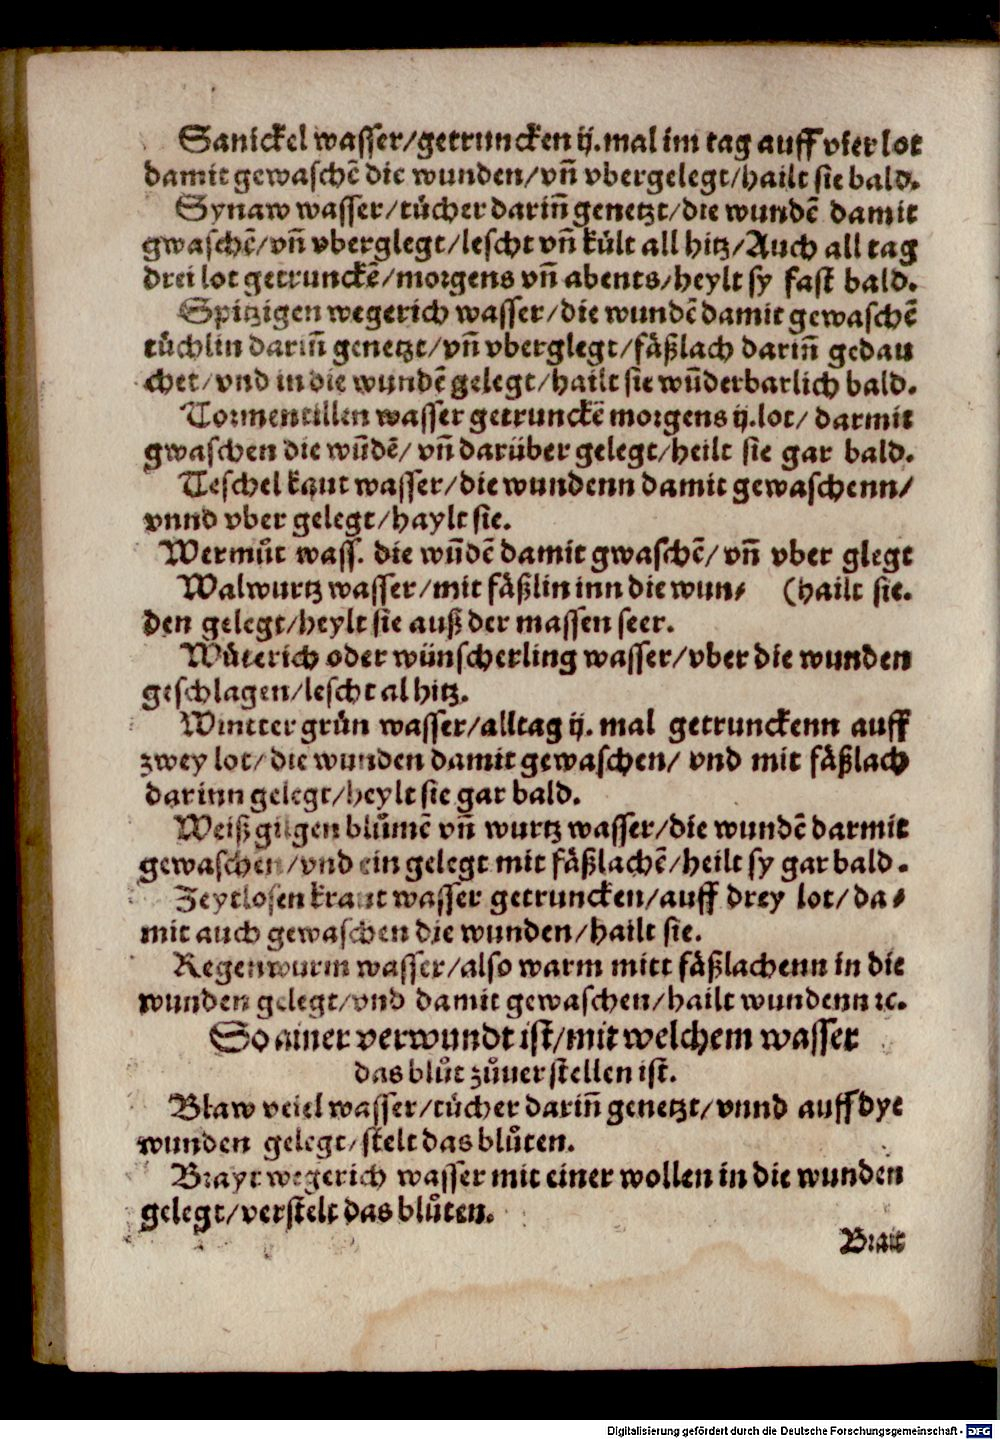 Sanickel wasser/getruncken ij. mal im tag auff vier lot
damit gewaschẽ die wunden/vñ vbergelegt/hailt sie bald.
Synaw wasser/tücher dariñ genetzt/die wundẽ damit
gwaschẽ/vñ vberglegt/lescht vñ kůlt all hitz/Auch all tag
drei lot getrunckẽ/morgens vñ abents/heylt sy fast bald.
Spitzigen wegerich wasser/die wundẽ damit gewaschẽ
tůchlin dariñ genetzt/vñ vberglegt/fäßlach dariñ gedau
chet/vnd in die wundẽ gelegt/hailt sie wũderbarlich bald.
Tormentillen wasser getrunckẽ morgens ij. lot/ darmit
gwaschen die wũdẽ/ vñ darüber gelegt/heilt sie gar bald.
Teschel kaut wasser/die wundenn damit gewaschenn/
vnnd vber gelegt/haylt sie.
Wermůt wass. die wũdẽ damit gwaschẽ/ vñ vber glegt
Walwurtz wasser/mit fäßlin inn die wun⸗ (hailt sie.
den gelegt/heylt sie auß der massen seer.
Wůterich oder wünscherling wasser/vber die wunden
geschlagen/lescht al hitz.
Wintter grůn wasser/alltag ij. mal getrunckenn auff
zwey lot/ die wunden damit gewaschen/ vnd mit fäßlach
darinn gelegt/heylt sie gar bald.
Weiß gilgen blůmẽ vñ wurtz wasser/die wundẽ darmit
gewaschen/vnd ein gelegt mit fäßlachẽ/heilt sy gar bald.
Zeytlosen kraut wasser getruncken/auff drey lot/ da⸗
mit auch gewaschen die wunden/hailt sie.
Regenwurm wasser/also warm mitt fäßlachenn in die
wunden gelegt/vnd damit gewaschen/hailt wundenn ꝛc.
So ainer verwundt ist/mit welchem wasser
das blůt zůuerstellen ist.
Blaw veiel wasser/tücher dariñ genetzt/vnnd auff dye
wunden gelegt/stelt das blůten.
Brayt wegerich wasser mit einer wollen in die wunden
gelegt/verstelt das blůten.
Brait
Digitalisierung gefördert durch die Deutsche Forschungsgemeinschaft - DFG